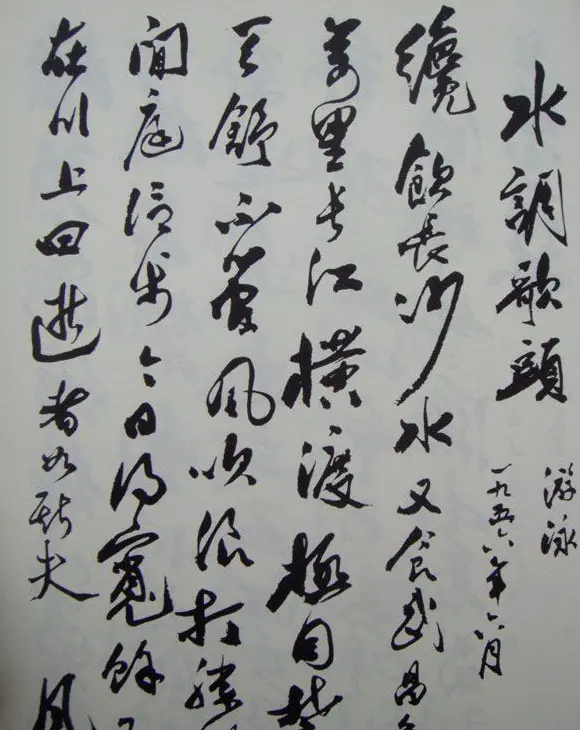 水調歌頭
游泳
一九五六年六月
纔飲長沙水又食武昌
萬里長江橫渡極目楚
天舒不管風吹浪打勝
閒庭信步今日得寬餘
在川上曰逝者如斯夫